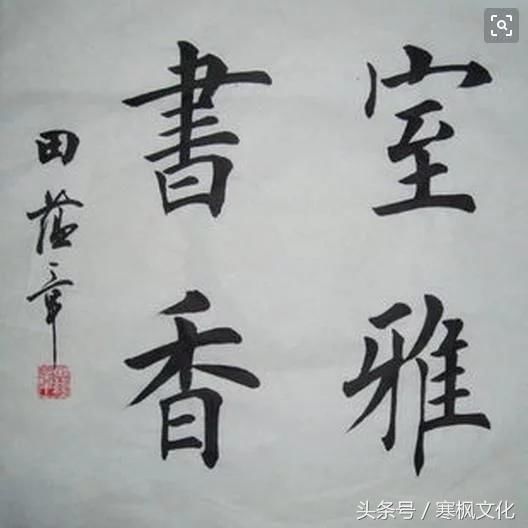 室雅
書香
田蕴章
头条号 / 寒枫文化